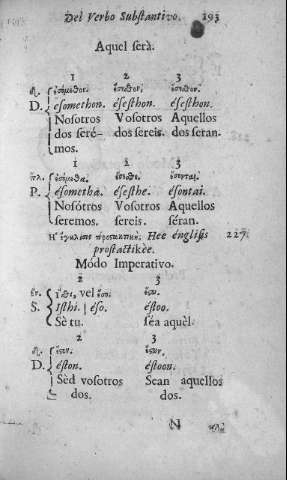 Del Verbo Substantivo. 193
Aquel serà.
1 2 3
δι. ἐσόμεθον. ἔσεσθον. ἔσεσθον.
D. esomethon. ésesthon. ésesthon.
Nosotros Vosotros Aquellos
dos seré- dos sereis. dos seran.
mos.
1 2 3
πλ. ἐσόμεθα. ἔσεσθε. ἔσονται.
P. ésometha. ésesthe. ésontai.
Nosótros Vosotros Aquellos
seremos. sereis. séran.
Ἡ ἔγκλισις προστακτική. Hee énglisis 227.
prostactikèe.
Módo Imperativo.
2 3
ἑν. ἴσθι, vel ἔσο. ἔστω.
S. Isthi. | éso. éstoo.
Sè tu. séa aquèl.
2 3
δι. ἔστον. ἔστων.
D. éston. éstoon.
Sèd vosotros Sean aquellos
dos. dos.
N